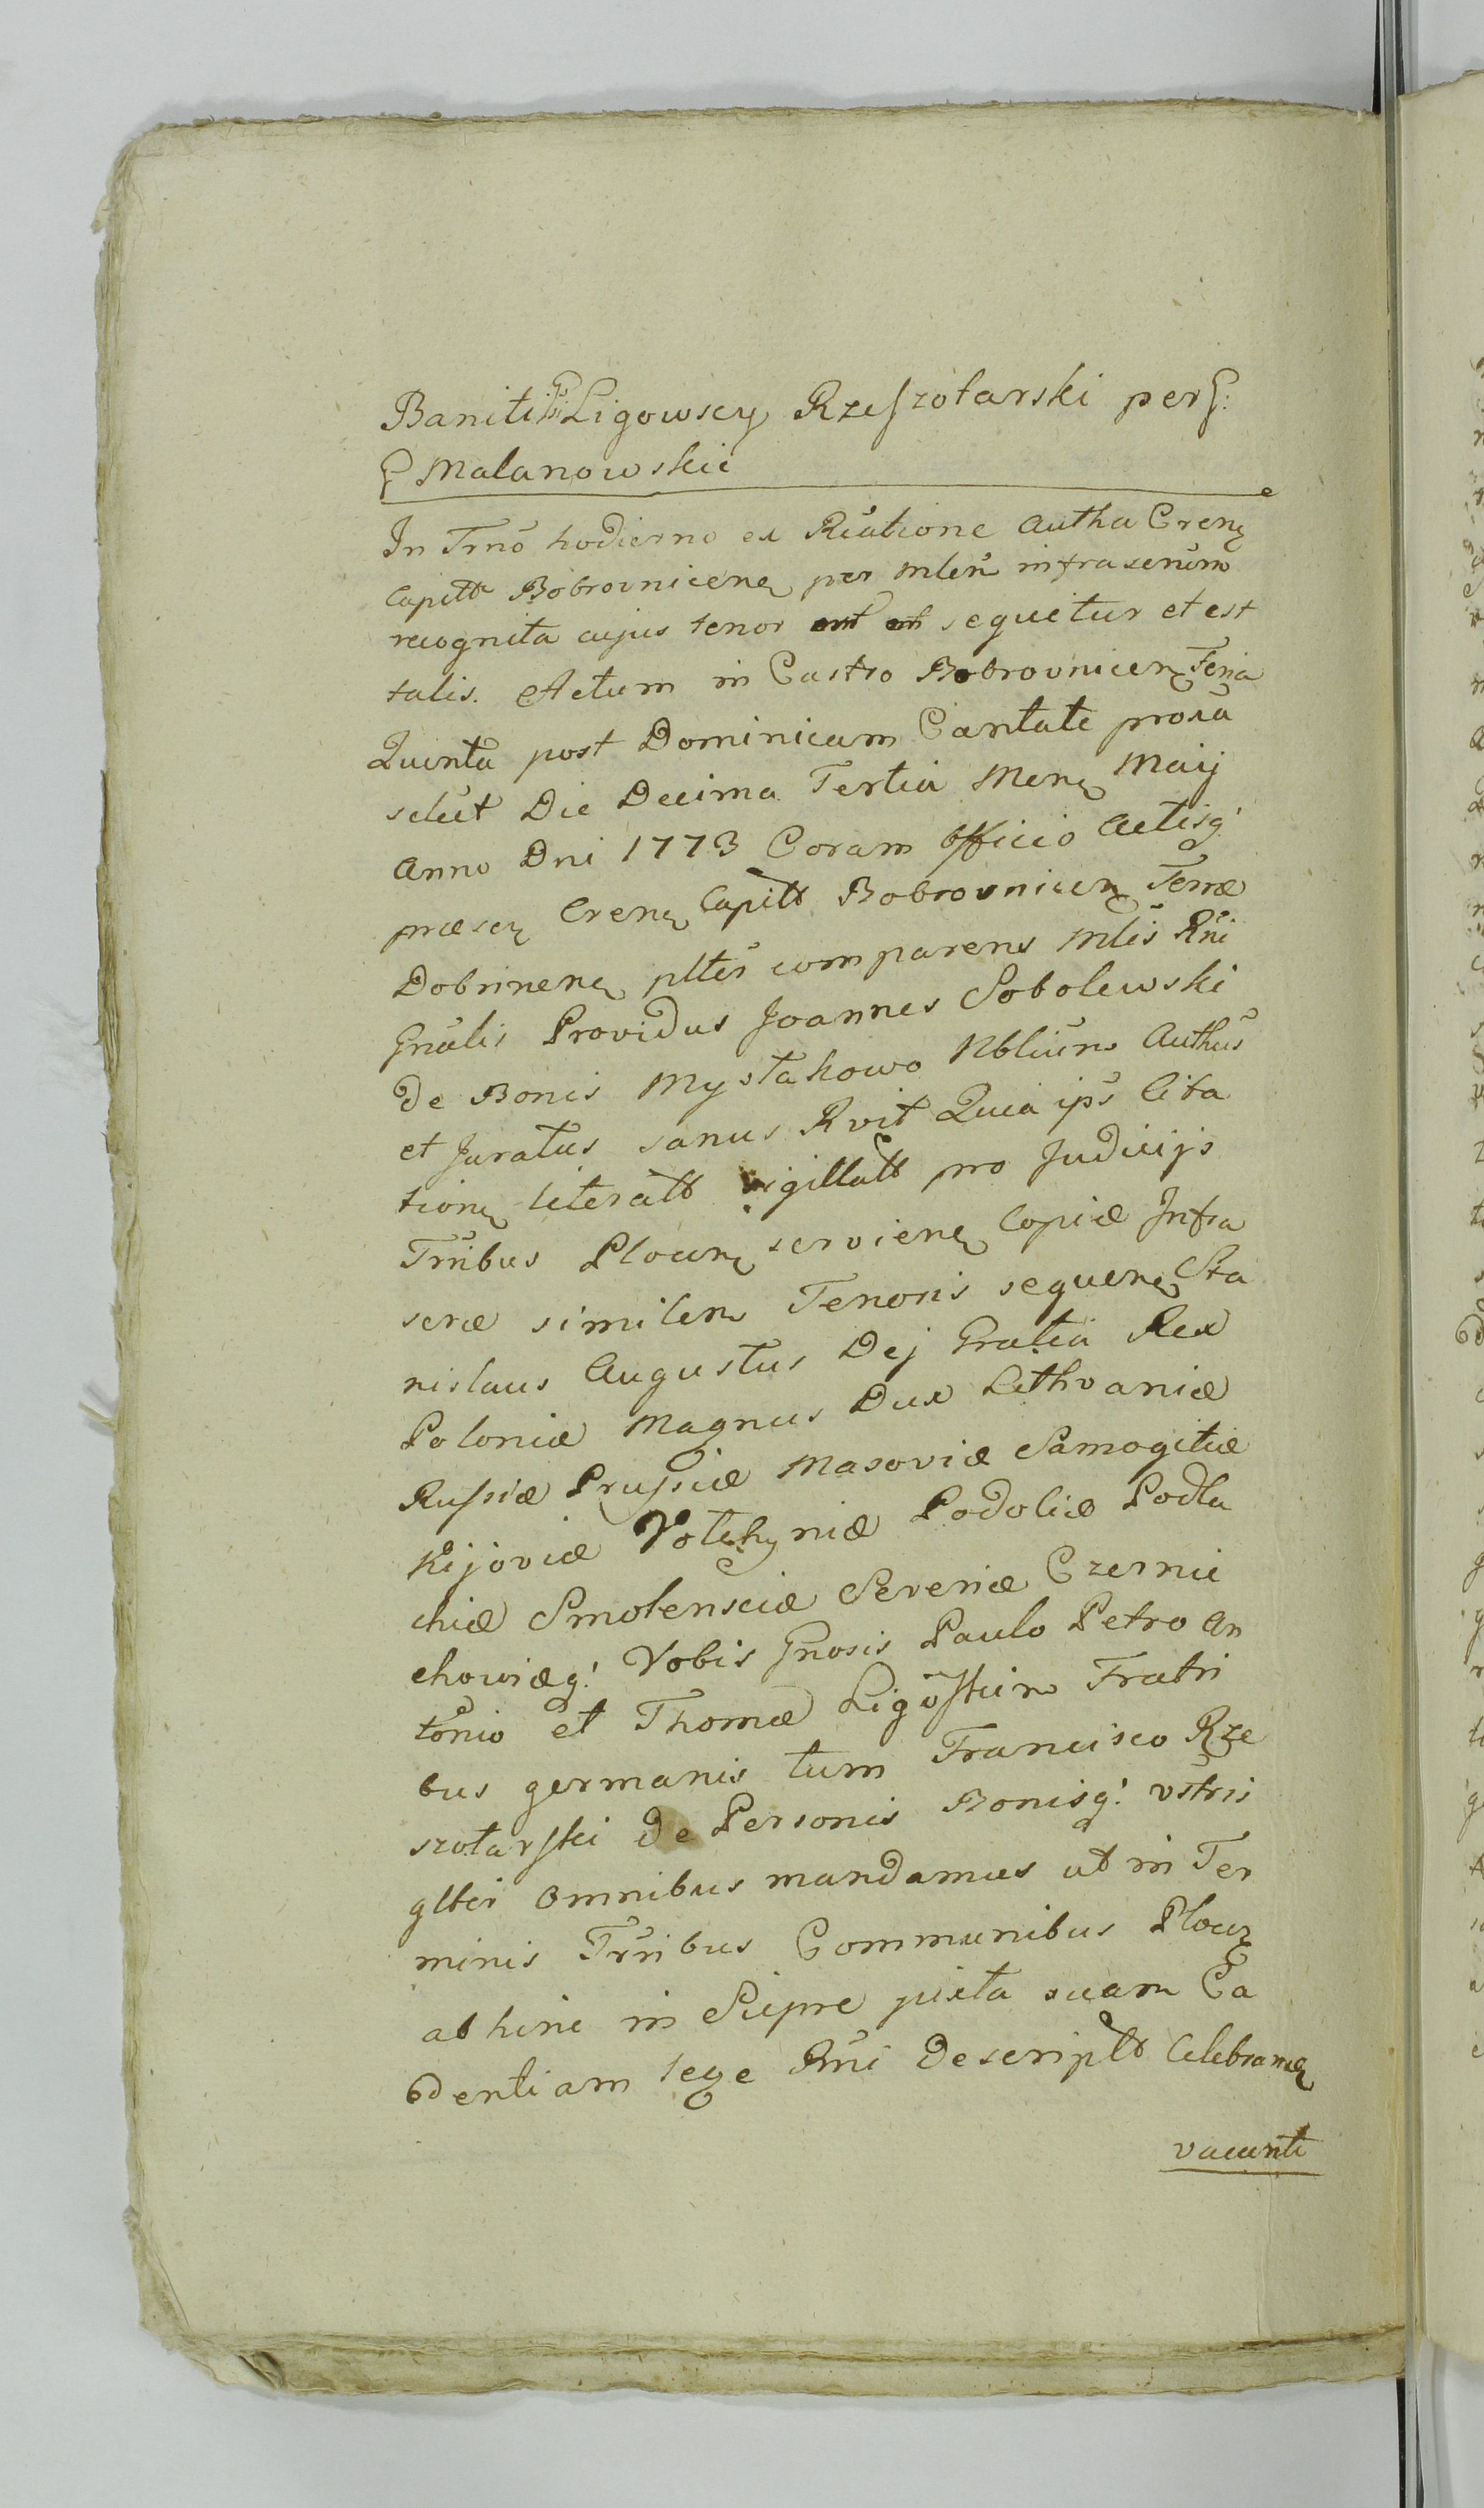 Baniti GG Ligowscy Rzeszotarski per G:
G Malanowskie
In Trno hodierno ex Rlatione Autha Cren
Capitt Bobrovnicen per Mlem infrascrum
recognita cujus tenor sequitur et est
talis. Actum in Castro Bobrovnicen Feria
Quinta post Dominicam Cantate proxa
scilcet Die Decima Tertia Mens Maij
Anno Dni 1773 Coram Officio Actisq:
praesen Cren Capitt Bobrovnicen Terrae
Dobrinen plter comparens Mlis Rni
Gnalis Providus Joannes Sobolewski
de Bonis Mystkowo Nblium Authus
et Juratus sanus Rvit Quia ips Cita
tion literatt sigillatt pro Judicijs
Trribus Plocen servien Copiae Infra
scrae similem Tenoris sequen Sta
nislaus Augustus Dej Gratia Rex
Poloniae Magnus Dux Lithvaniae
Russiae Prussiae Masoviae Samogitiae
Kijoviae Volchyniae Podoliae Podla
chiae Smolensciae Severiae Czernie
chowiaeq: Vobis Gnosis Paulo Petro An
tonio et Thomae Ligostkim Fratri
bus germanis tum Francisco Rze
szotarski de Personis Bonisq: vstris
glter Omnibus mandamus ut in Ter
minis Trribus Communibus Plocen
ab hinc in Sierpc juxta suam Ca
dentiam lege Rni descriptt Celebran
vacanti